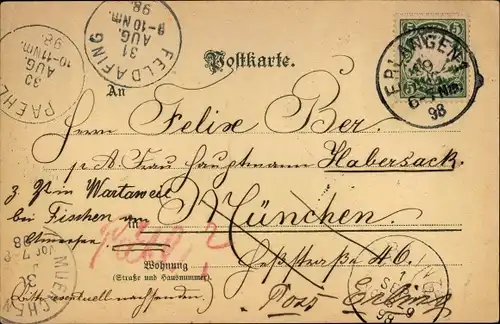 FELDAFING
31
AUG.
9-10 Nm.
98.
PAEHL
30
AUG.
10-11 Nm.
98
Postkarte.
5
5
ERLANGEN 1
98
An
Herrn Felix Ber.
p. A. Frau Hauptmann Habersack.
z. Zt in Wartaweil
bei Fischen am
in
München.
Ammersee.
Wohnung
(Straße und Hausnummer)
Heßstraße 46
(Bitte eventuell nachsenden)
MUENCHEN
Vor 7-8
30
98